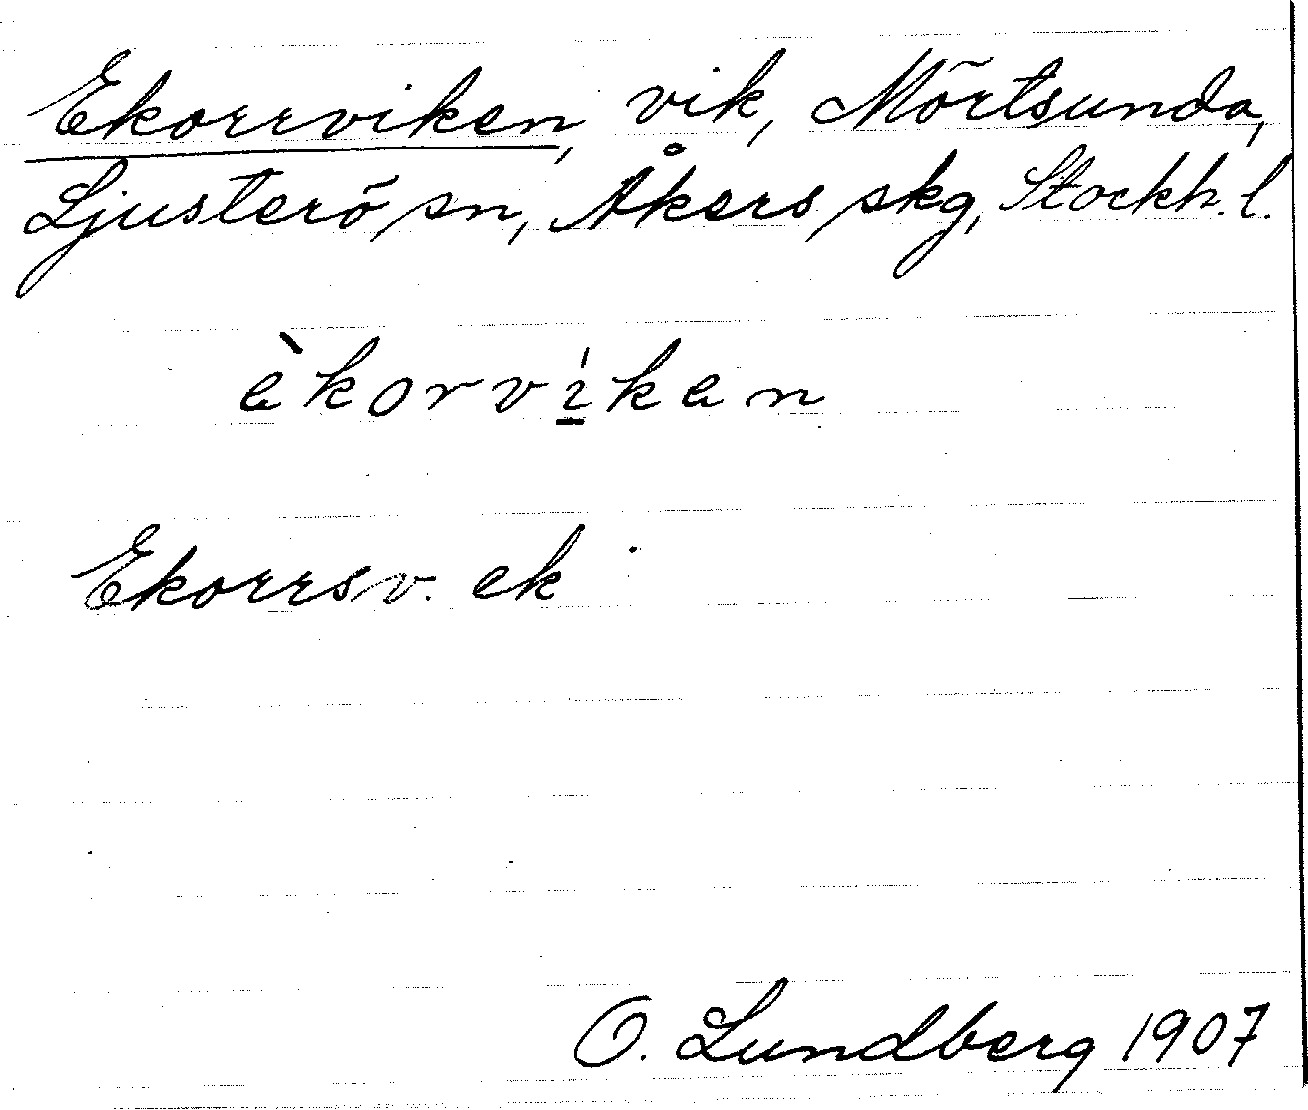 Ekorrviken, vik, Mörtsunda,
Ljusterö sn, Åkers skg, Stockh. l.
èkorví̲ken
Ekorrsv. ek
O. Lundberg 1907